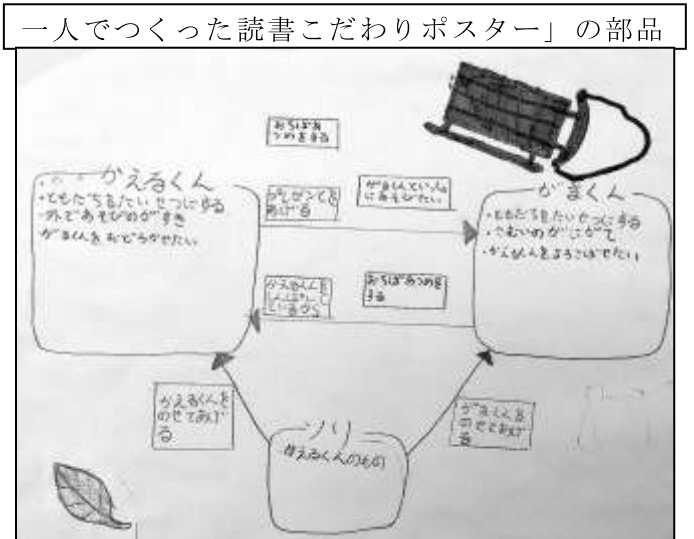 一人でつくった読書こだわりポスター」の部品
おちばあ
つめをする
かえるくん
・ともだちをたいせつにする
・外であそびのがすき
がまくんをおどろかせたい
プレゼントを
あげる
がまくんといっしょ
にあそびたい
がまくん
・ともだちをたいせつにする
・さむいのがにがて
・かえるくんをよろこばせたい
かえるくんを
しんぱいし
ているから
おちばあつめを
する
かえるくんを
のせてあげ
る
がまくんを
のせてあげ
る
ソリ
かえるくんのもの